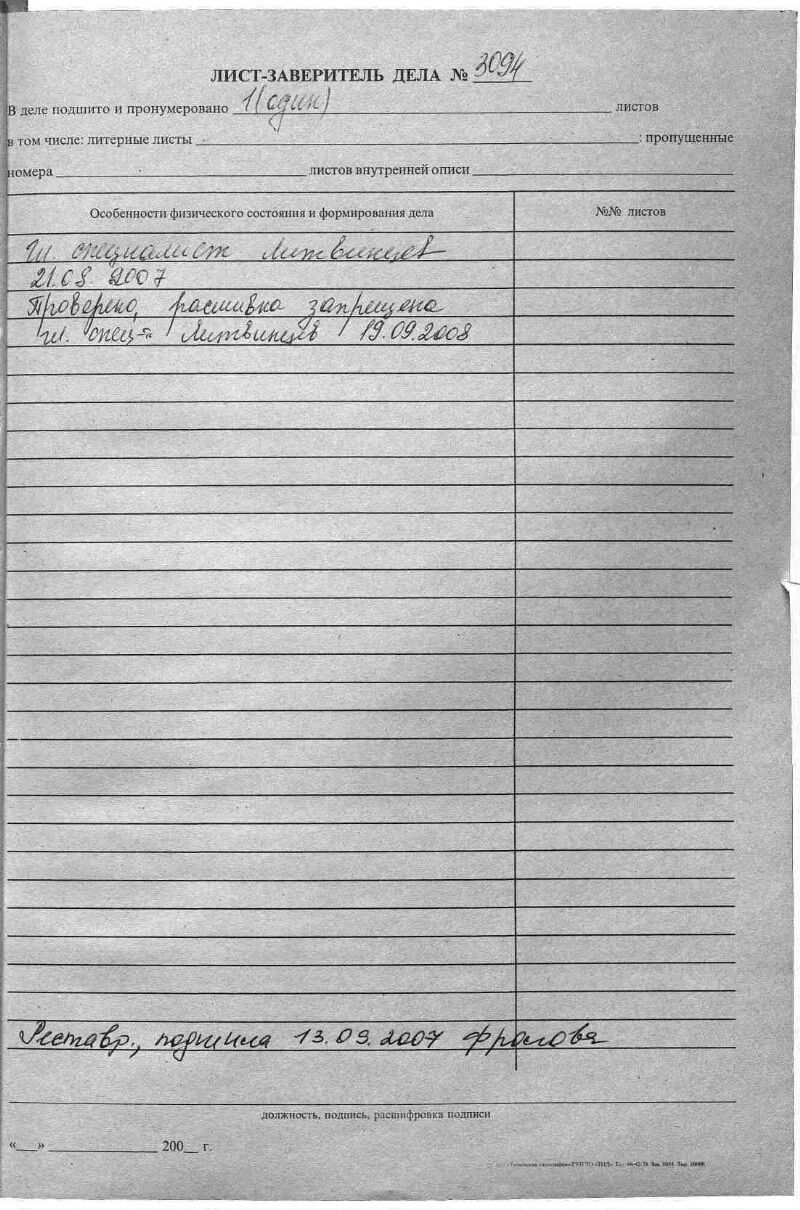 ЛИСТ-ЗАВЕРИТЕЛЬ ДЕЛА № 3094
В деле подшито и пронумеровано 1 (один) листов
в том числе: литерные листы : пропущенные
номера листов внутренней описи
Особенности физического состояния и формирования дела №№ листов
Гл. специалист Литвинцев
21.08.2007
Проверено, расшивка запрещена
гл. спец-т Литвинцев 19.09.2008
Реставр., подшила 13.09.2007 Фролова
должность, подпись, расшифровка подписи
«__» 200__ г.